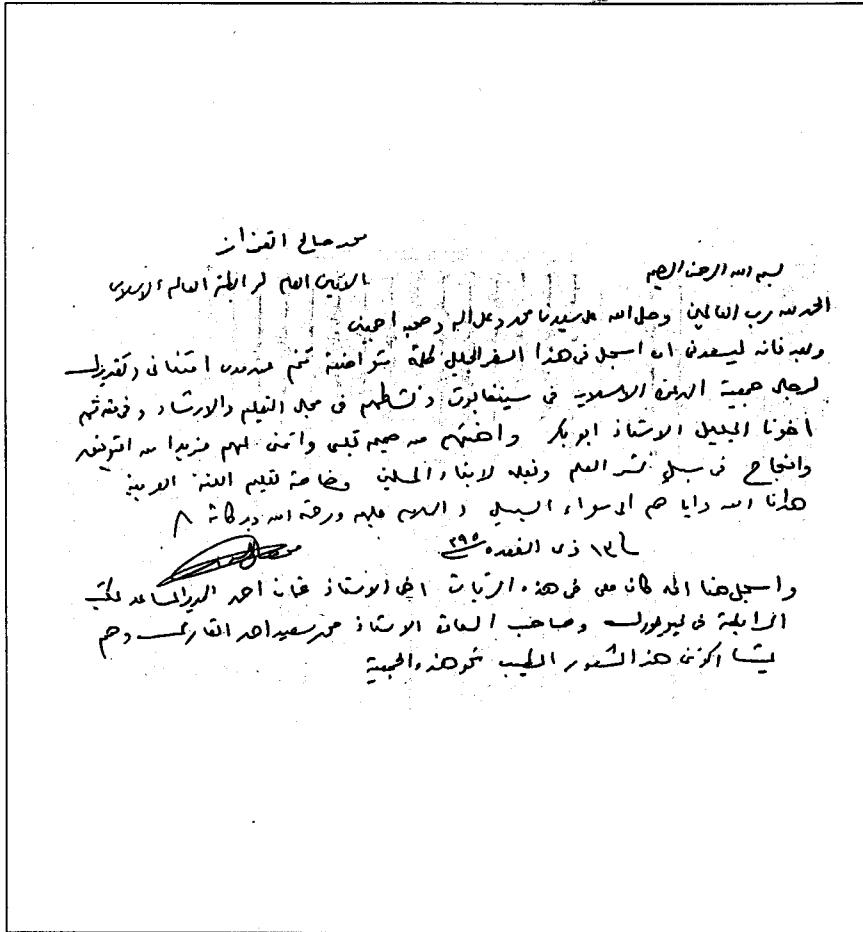 محمد صالح القزاز
الامين العام لرابطة العالم الاسلامى
بسم الله الرحمن الرحيم
الحمد لله رب العالمين وصلى الله على سيدنا محمد وعلى آله وصحبه اجمعين
وبعد فانه ليسعدنى ان اسجل فى هذا السفر الجليل كلمة متواضعة تنم عن مدى امتنانى وتقديرى
لرجال جمعية الدعوة الاسلامية فى سينغابورت ونشاطهم فى مجال التعليم والارشاد وفى مقدمتهم
اخونا الجليل الاستاذ ابو بكر واهنئهم من صميم قلبى واتمنى لهم مزيدا من التوفيق
والنجاح فى سبيل نشر العلم ونفعه لابناء المسلمين وخاصة تعليم اللغة العربية
هدانا الله واياهم الى سواء السبيل والسلام عليكم ورحمة الله وبركاته
١٣ ذى القعدة ٣٩٥
واسجل هنا انه كان معى فى هذه الزيارات اخى الاستاذ احمد المدير المساعد لمكتب
الرابطة فى نيويورك وصاحب السعادة الاستاذ محمد سعيد احمد القارى وهم
يشاركوننى هذا الشعور الطيب نحو هذه الجمعية